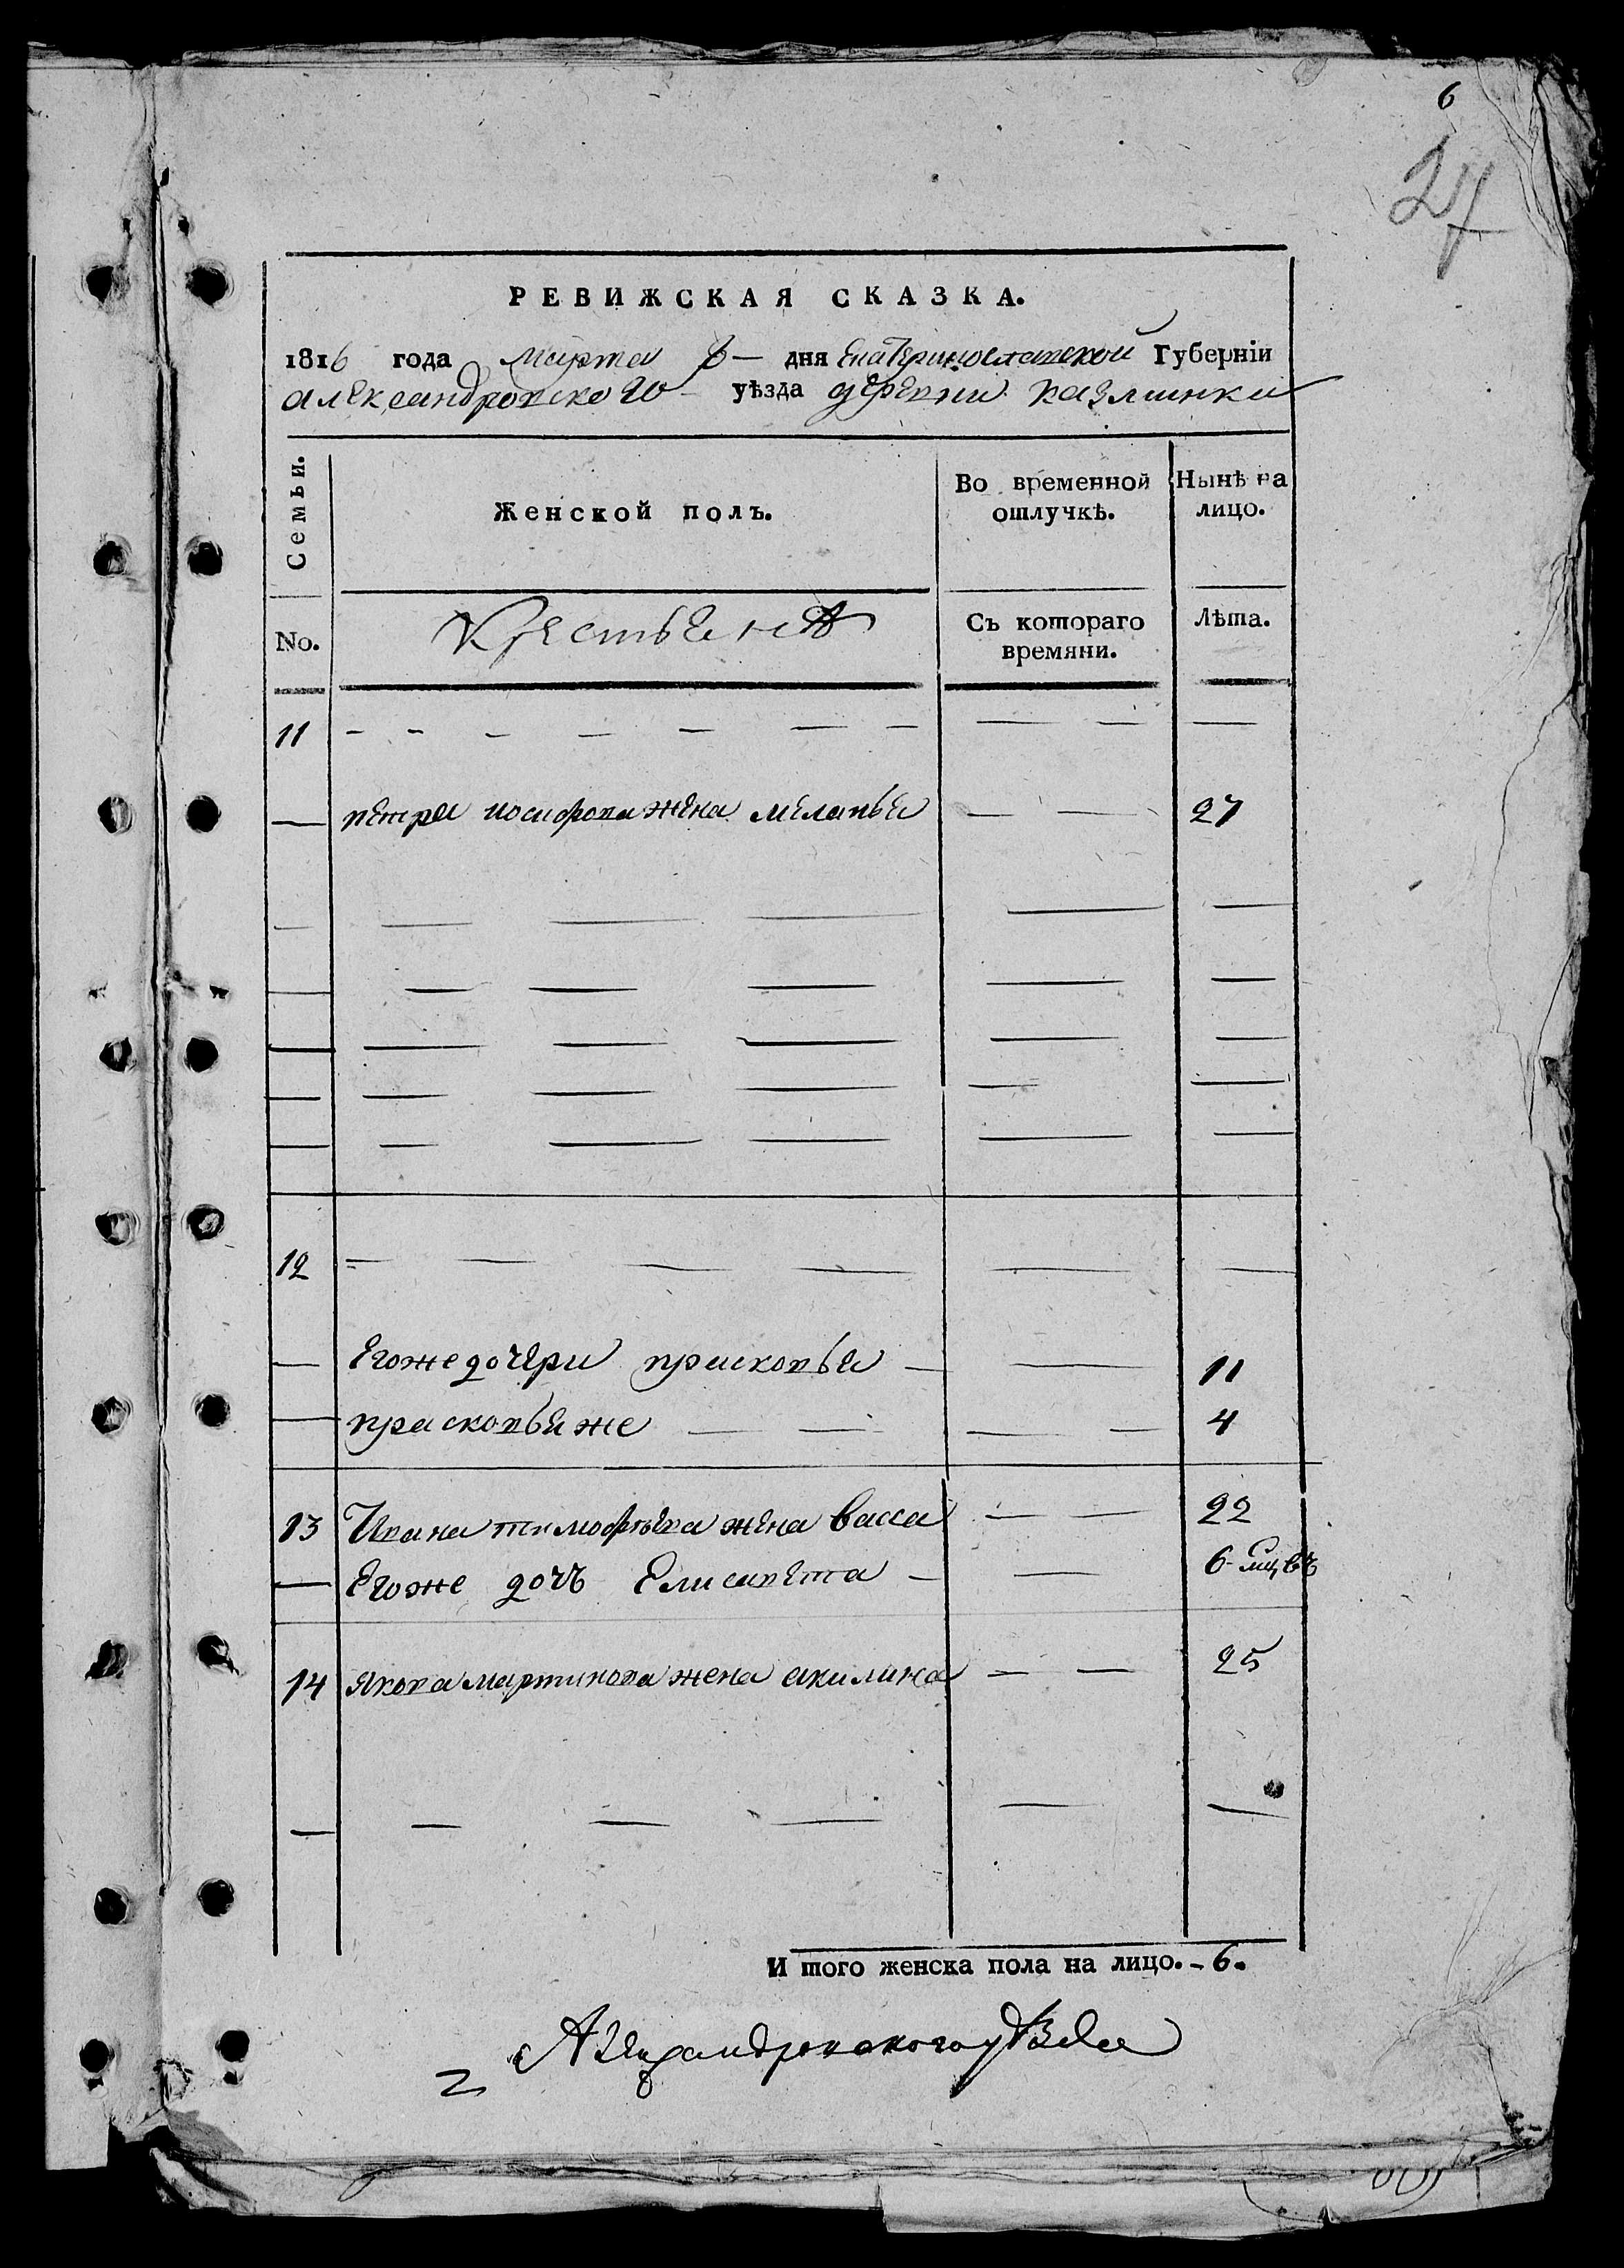 6
27
РЕВИЖСКАЯ СКАЗКА.
1816 года марта — дня Екатеринославской Губерніи
александровского уѣзда деревни
Семьи.
Женской полъ.
Во временной отлучкѣ.
Нынѣ на лицо.
No.
Крестьянъ
Съ котораго времяни.
Лѣта.
11 — — — — — — — — — —
— петра иосифова жена меланья — — 27
12 — — — — — —
— Егоже дочери прасковья — — 11
— прасковья же — — — — 4
13 Ивана тимофѣева жена васса — — 22
— Егоже дочь Елисавета — — 6 мцъвъ
14 якова мартинова жена акилина — — 25
И того женска пола на лицо. - 6.
Александровского уѣзда